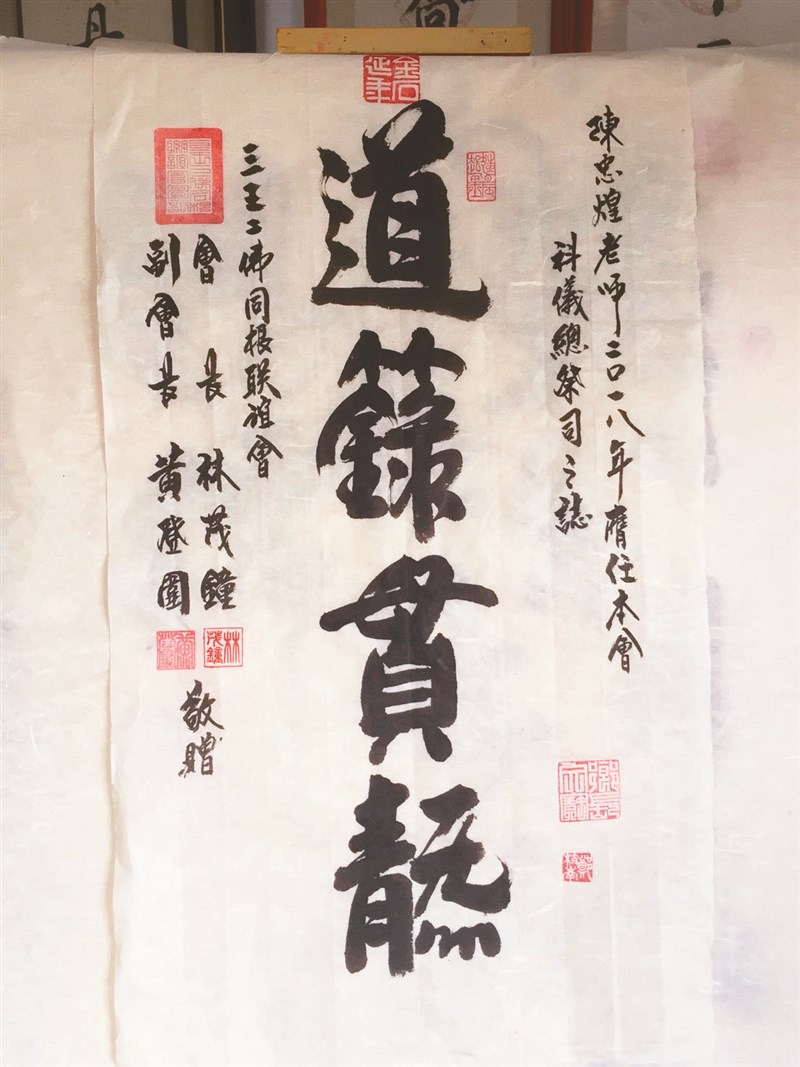 金石延年
陳忠煌老師二〇一八年膺任本會
科儀總祭司之誌
道籙貫靔
三王二佛同根联誼會
會長 林茂鐘
副會長 黃登園
敬贈
林茂鐘